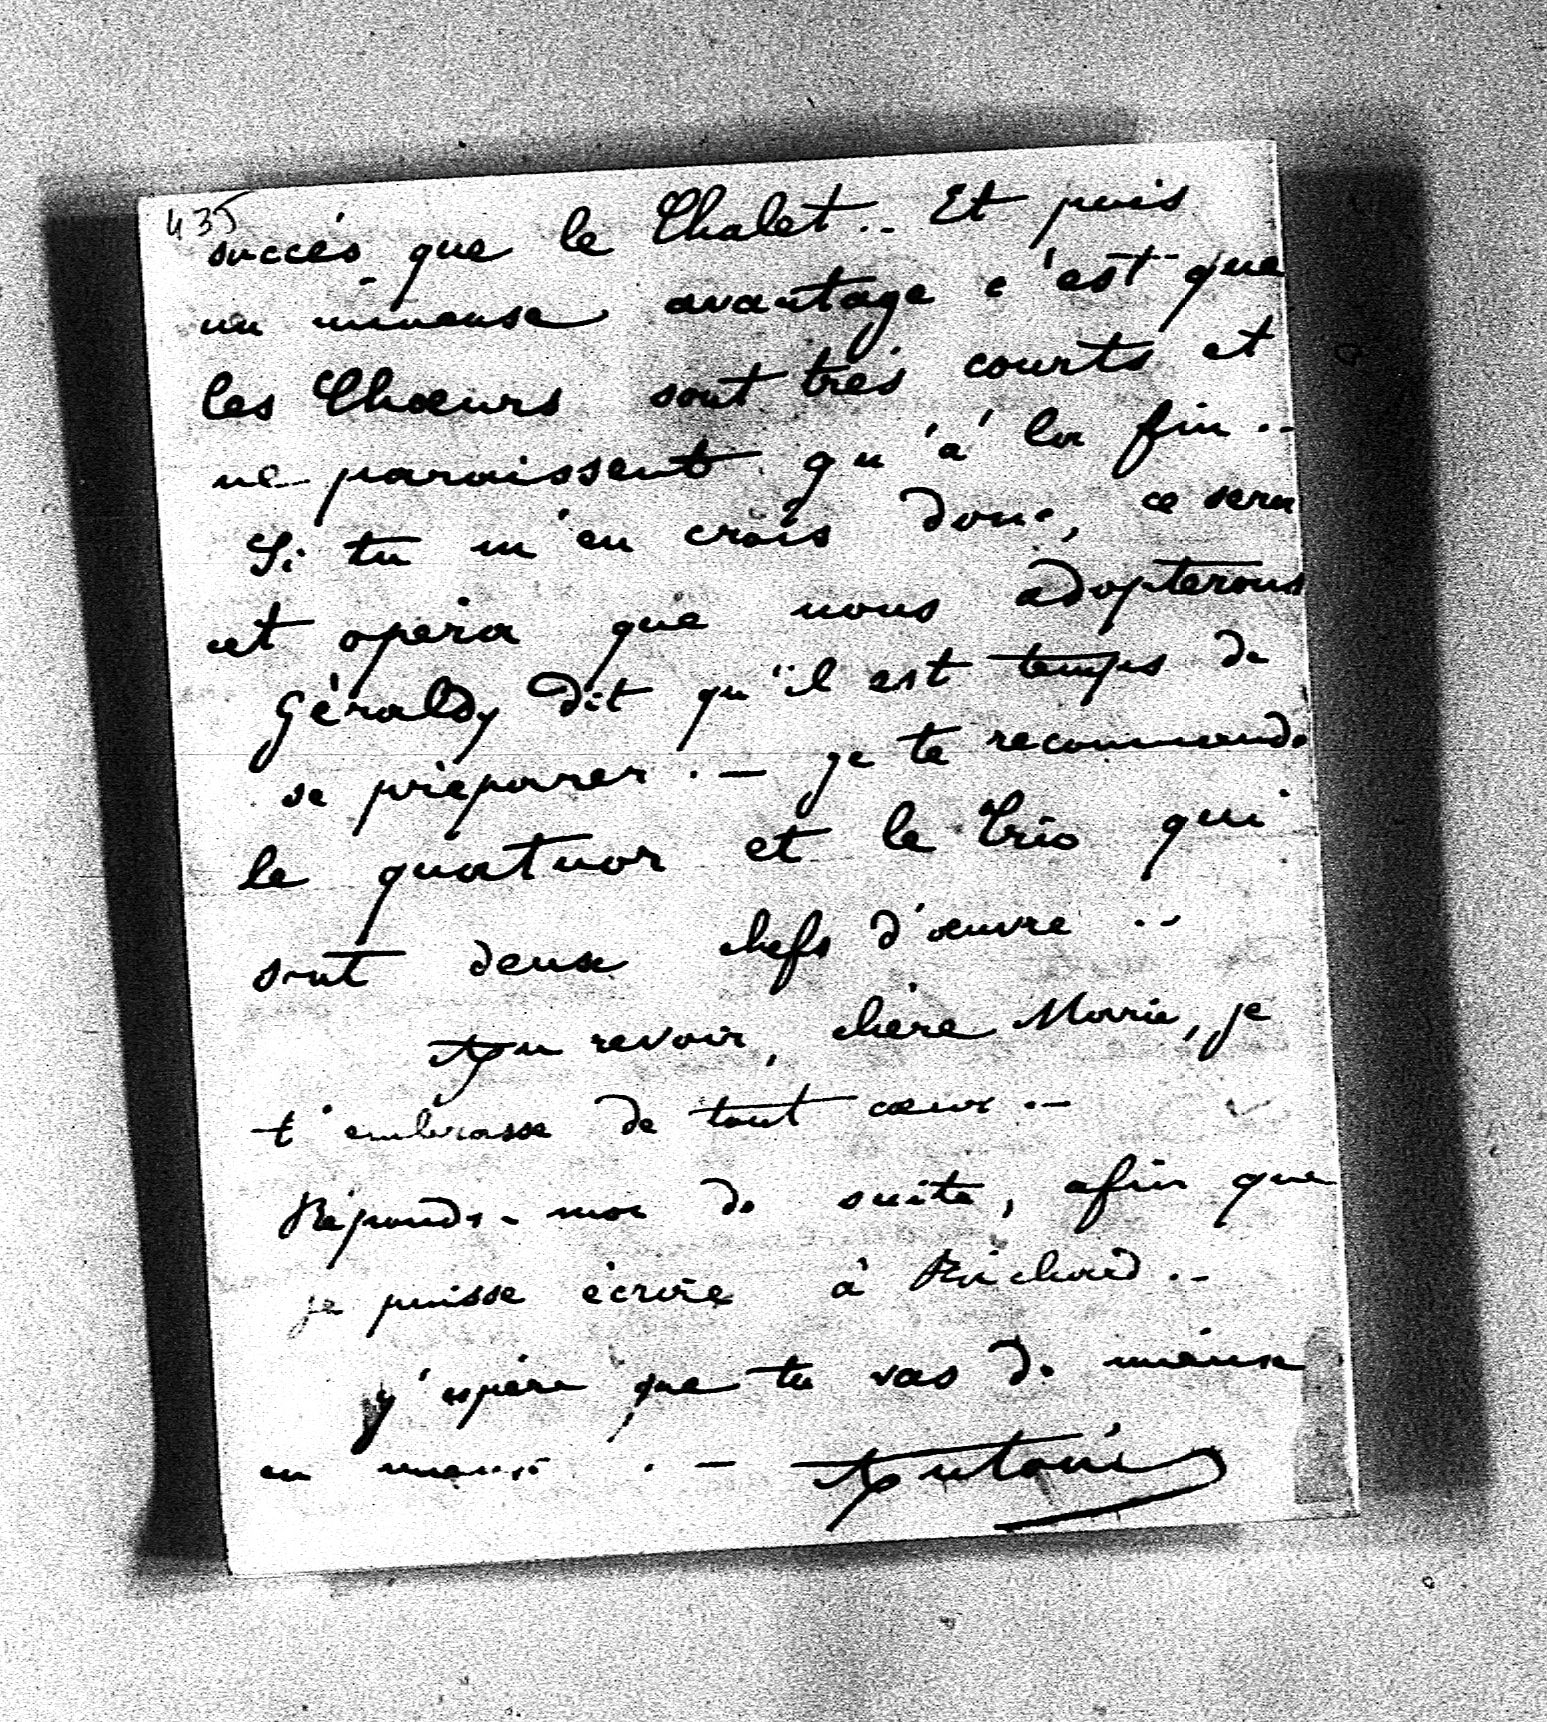 435
succés que le Chalet.. Et puis
un immense avantage c'est que
les Chœurs sont très courts et
ne paraissent qu'à la fin..
Si tu m'en crois donc, ce sera
cet opéra que nous adopterons
Géraldy dit qu'il est temps de
se préparer. — je te recommande
le quatuor et le Trio qui
sont deux chefs d'œuvre..
Au revoir, chère Marie, je
t'embrasse de tout cœur. —
Réponds-moi de suite, afin que
je puisse écrire à Richard. -
j'espère que tu vas de mieux
en mieux. — Antoni